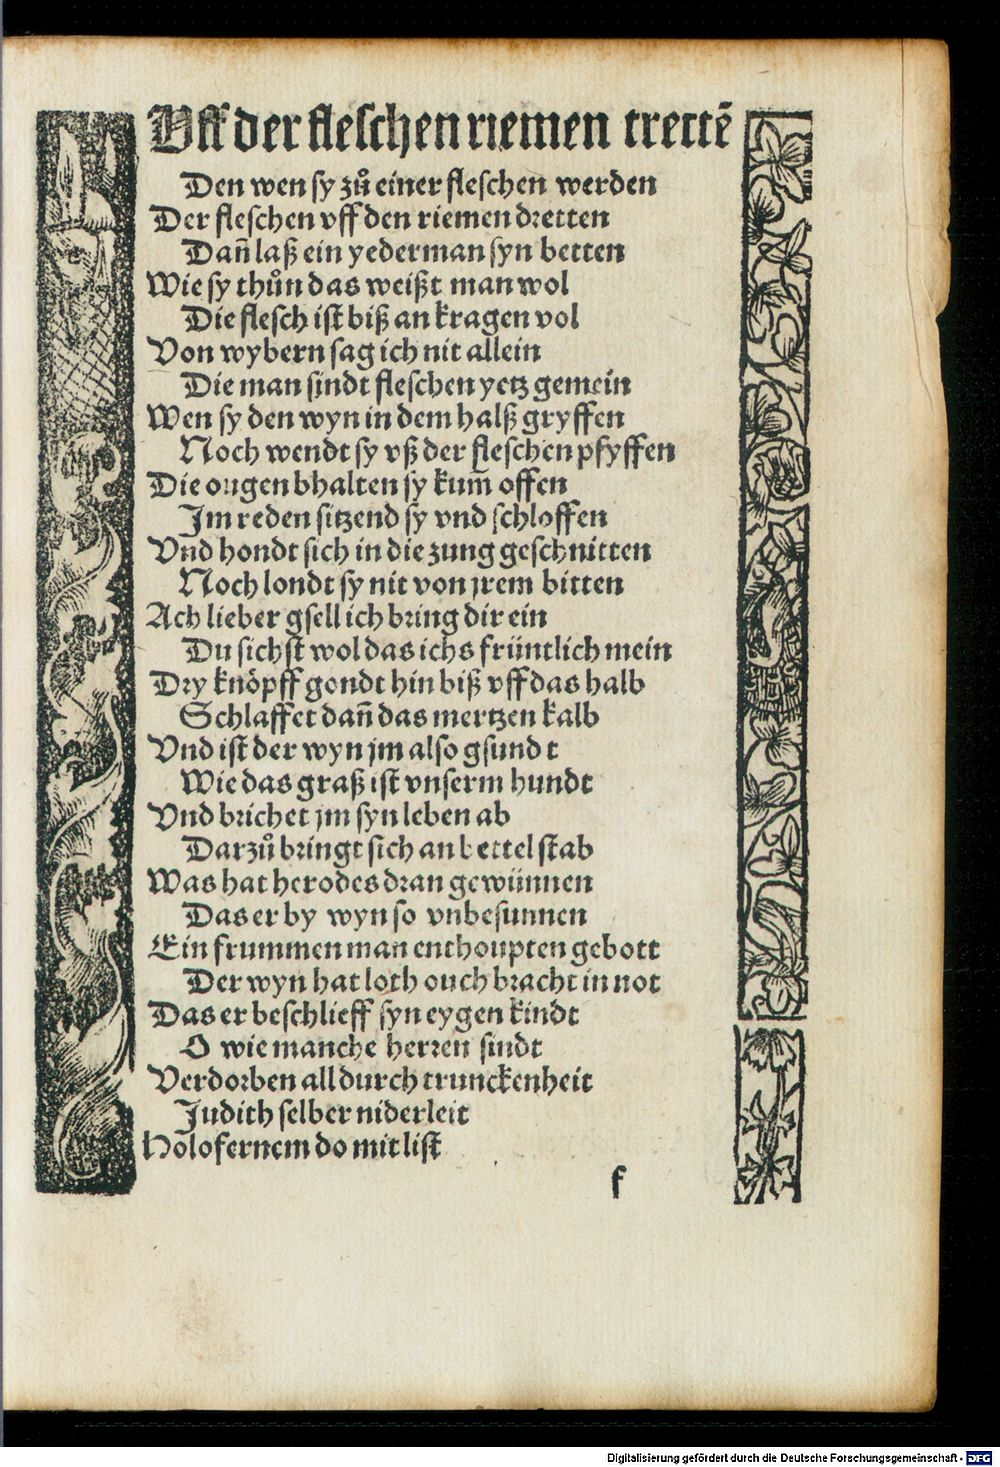 Vff der fleschen riemen trettē
Den wen sy zů einer fleschen werden
Der fleschen vff den riemen dretten
Dañ laß ein yederman syn betten
Wie sy thůn das weißt man wol
Die flesch ist biß an kragen vol
Von wybern sag ich nit allein
Die man sindt fleschen yetz gemein
Wen sy den wyn in dem halß gryffen
Noch wendt sy vß der fleschen pfyffen
Die ougen bhalten sy kum̄ offen
Im reden sitzend sy vnd schloffen
Vnd hondt sich in die zung geschnitten
Noch londt sy nit von jrem bitten
Ach lieber gsell ich bring dir ein
Du sichst wol das ichs früntlich mein
Dry knöpff gondt hin biß vff das halb
Schlaffet dañ das mertzen kalb
Vnd ist der wyn jm also gsundt
Wie das graß ist vnserm hundt
Vnd brichet jm syn leben ab
Darzů bringt sich an bettel stab
Was hat herodes dran gewünnen
Das er by wyn so vnbesunnen
Ein frummen man enthoupten gebott
Der wyn hat loth ouch bracht in not
Das er beschlieff syn eygen kindt
O wie manche herren sindt
Verdorben all durch trunckenheit
Judith selber niderleit
Holofernem do mit list
f
Digitalisierung gefördert durch die Deutsche Forschungsgemeinschaft - DFG